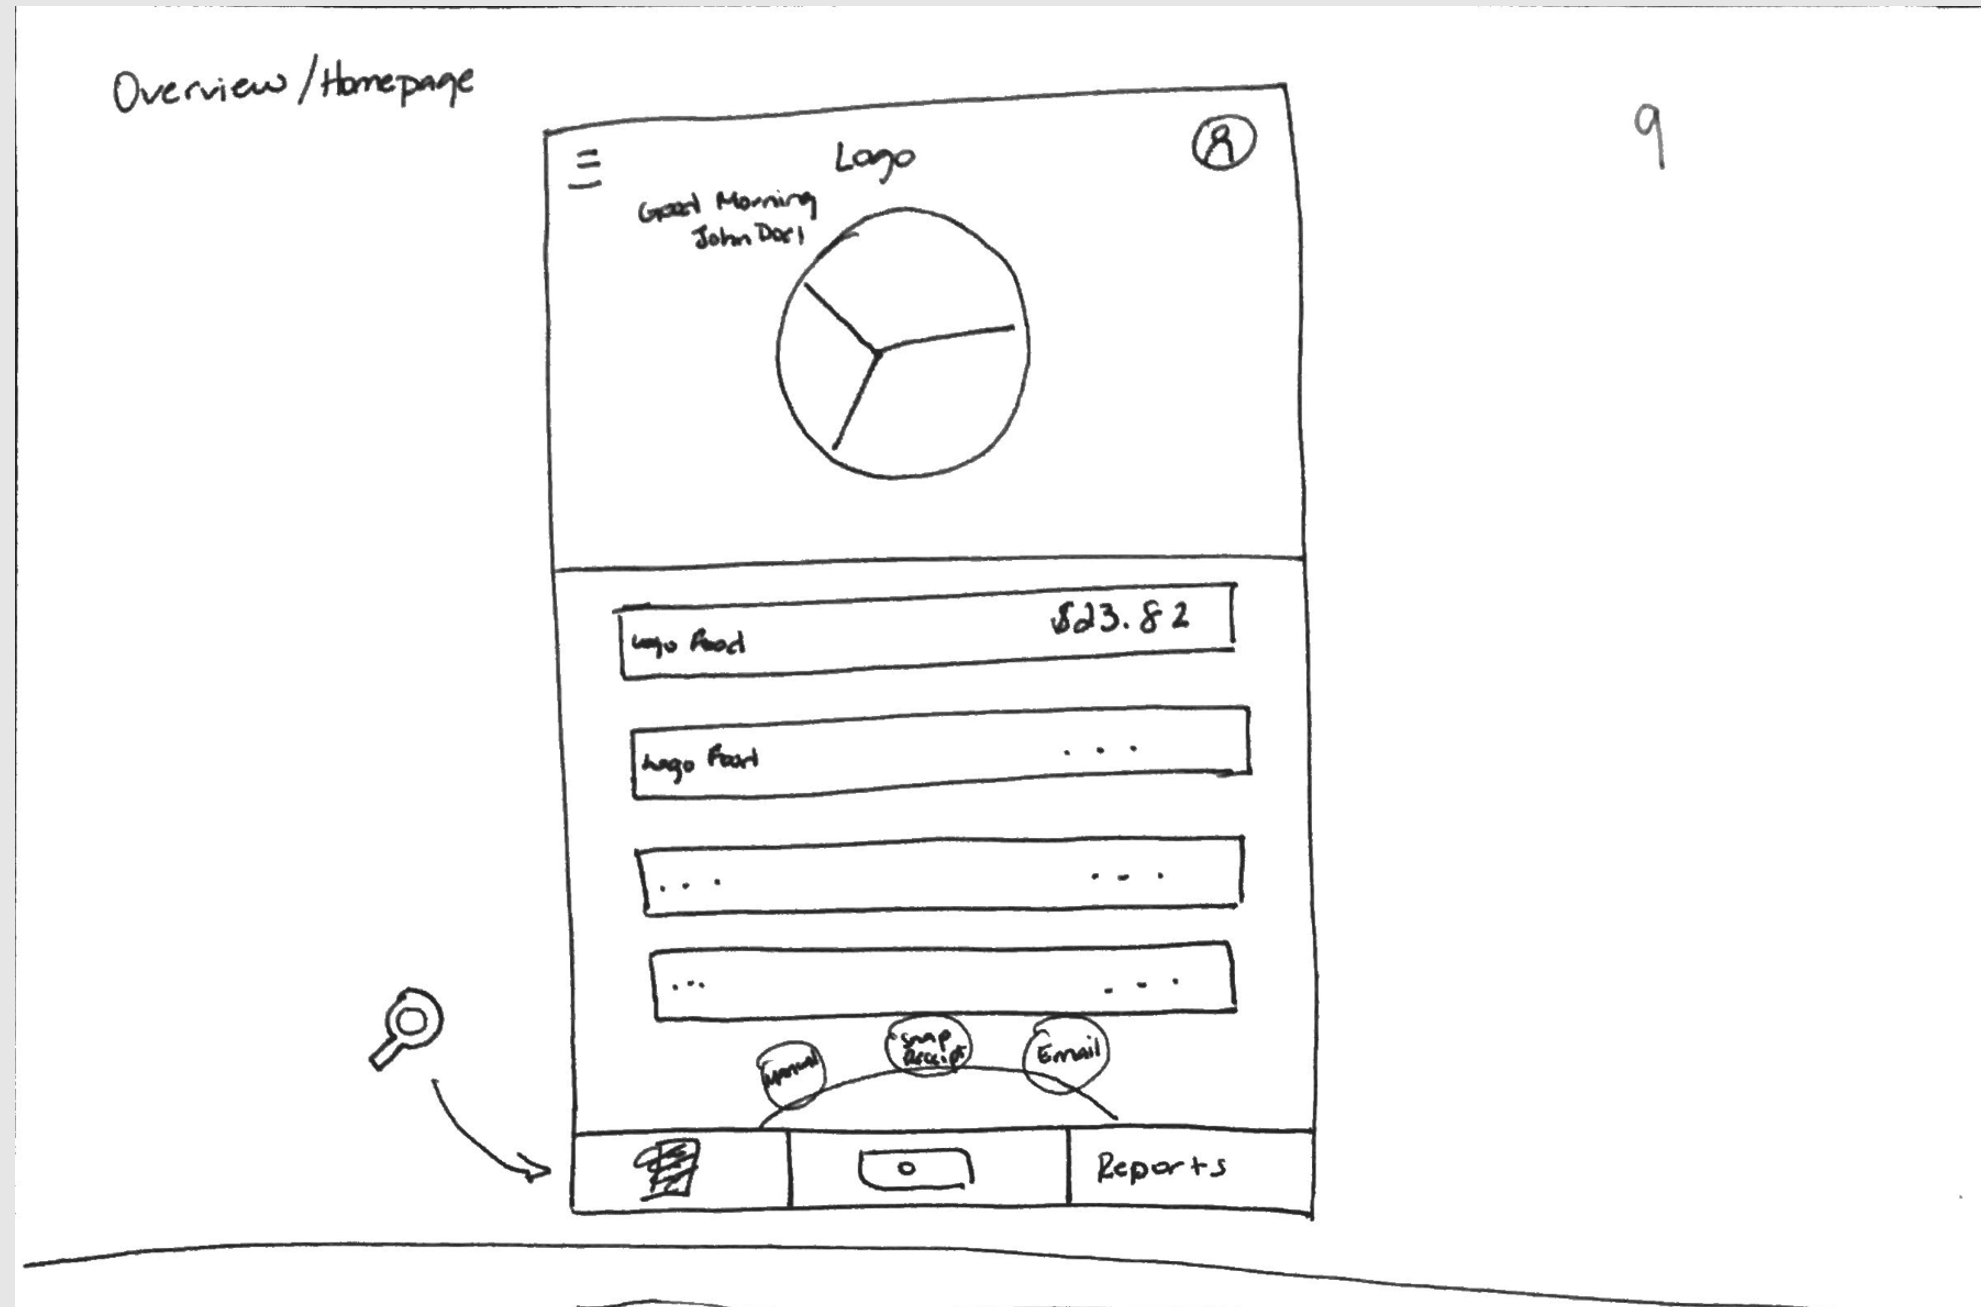 Overview/Homepage
9
Logo
Good Morning
John Doe!
Logo Food $23.82
Logo Food ...
... ...
... ...
Manual
Snap
Receipt
Email
Reports